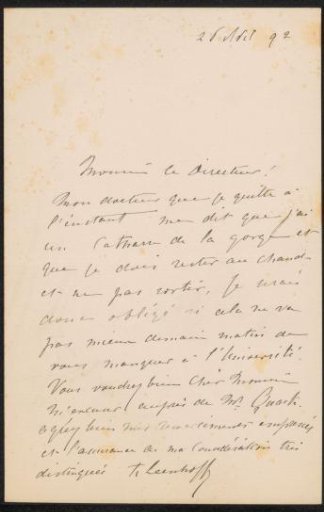 26 Avril 92
Monsieur le Directeur!
Mon docteur que je quitte à
l'instant me dit que j'ai
un Catharre de la gorge et
que je dois rester au chaud
et ne pas sortir, je serais
donc obligé si cela ne va
pas mieux demain matin de
vous manquer à l'Université.
Vous voudrez bien cher Monsieur
m'excuser auprès de Mr. Quack
et l'assurance de ma Considération très
distinguée